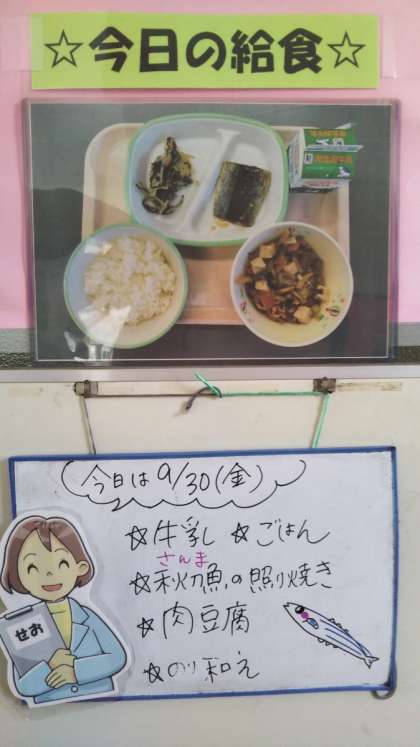 ☆今日の給食☆
今日は9/30(金)
☆牛乳 ☆ごはん
さんま
☆秋刀魚の照り焼き
☆肉豆腐
☆のり和え
せお